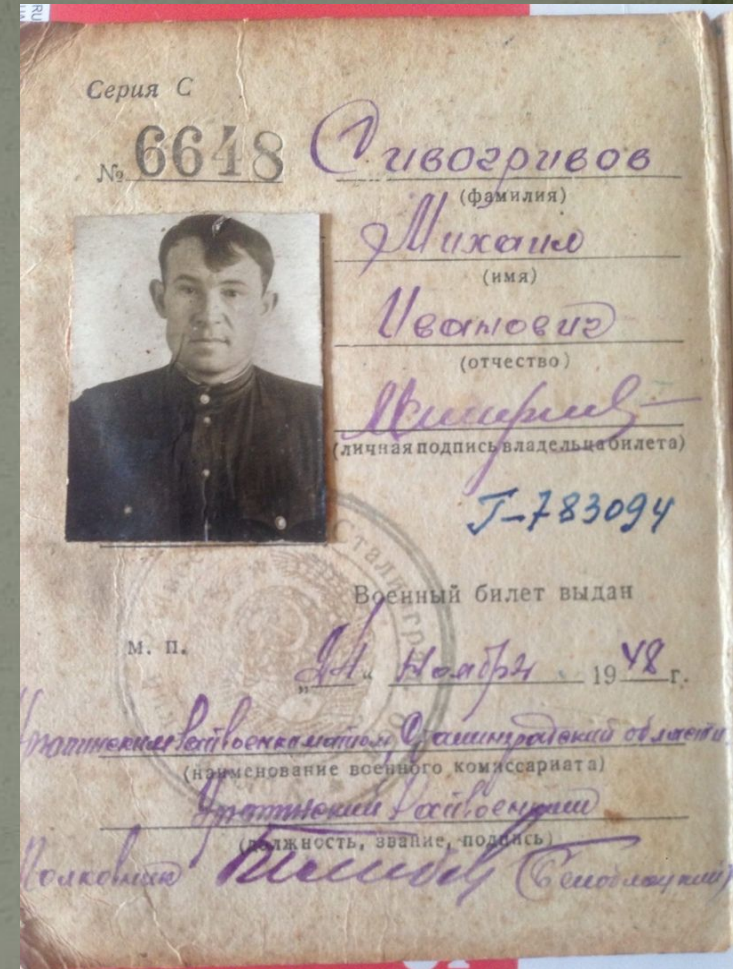 Серия С
№ 6648
Сивогривов
(фамилия)
Михаил
(имя)
Иванович
(отчество)
(личная подпись владельца билета)
Г-783094
Военный билет выдан
М. П.
„24“ Ноября 1948 г.
Райвоенкоматом, Сталинградской области
(наименование военного комиссариата)
Райвоенком
(должность, звание, подпись)
Полковник